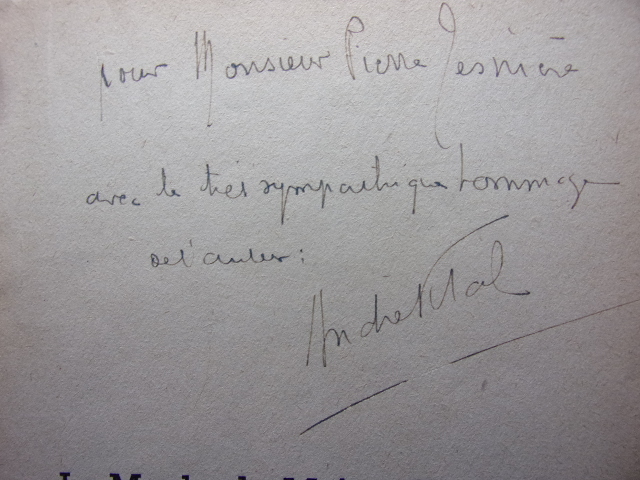 pour Monsieur Pierre
avec le très sympathique hommage
de l'auteur :
André